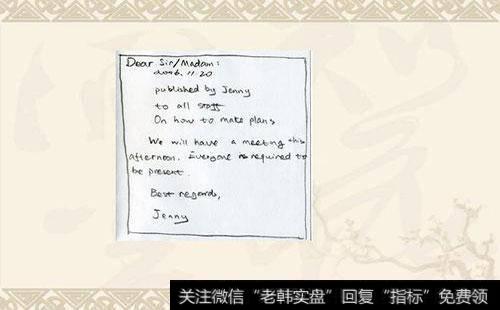 Dear Sir/Madam:
2006.11.20
published by Jenny
to all staff
On how to make plans
We will have a meeting this
afternoon. Everyone is required to
be present.
Best regards,
Jenny
关注微信“老韩实盘”回复“指标”免费领